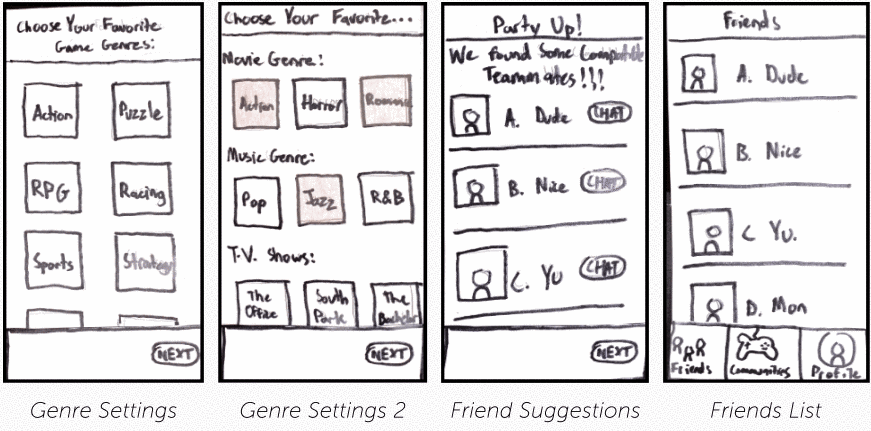 Choose Your Favorite
Game Genres:
Action
Puzzle
RPG
Racing
Sports
Strategy
NEXT
Genre Settings
Choose Your Favorite...
Movie Genre:
Action
Horror
Romance
Music Genre:
Pop
Jazz
R&B
T.V. Shows:
The
Office
South
Park
The
Bachelor
NEXT
Genre Settings 2
Party Up!
We found Some Compatible
Teammates!!!
A. Dude
CHAT
B. Nice
CHAT
C. Yu
CHAT
NEXT
Friend Suggestions
Friends
A. Dude
B. Nice
C Yu.
D. Mon
Friends
Communities
Profile
Friends List